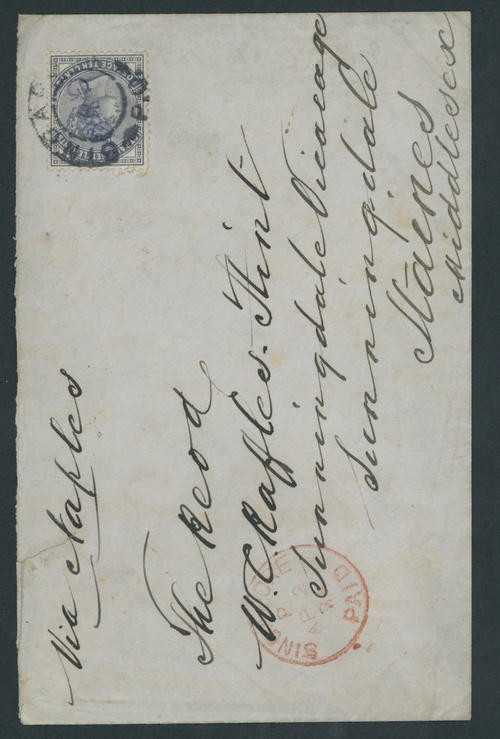 Via Naples
The Revd
W. C. Raffles-Flint
Sunningdale Vicarage
Sunningdale
Staines
Middlesex
SINGAPORE
AP 2
PAID